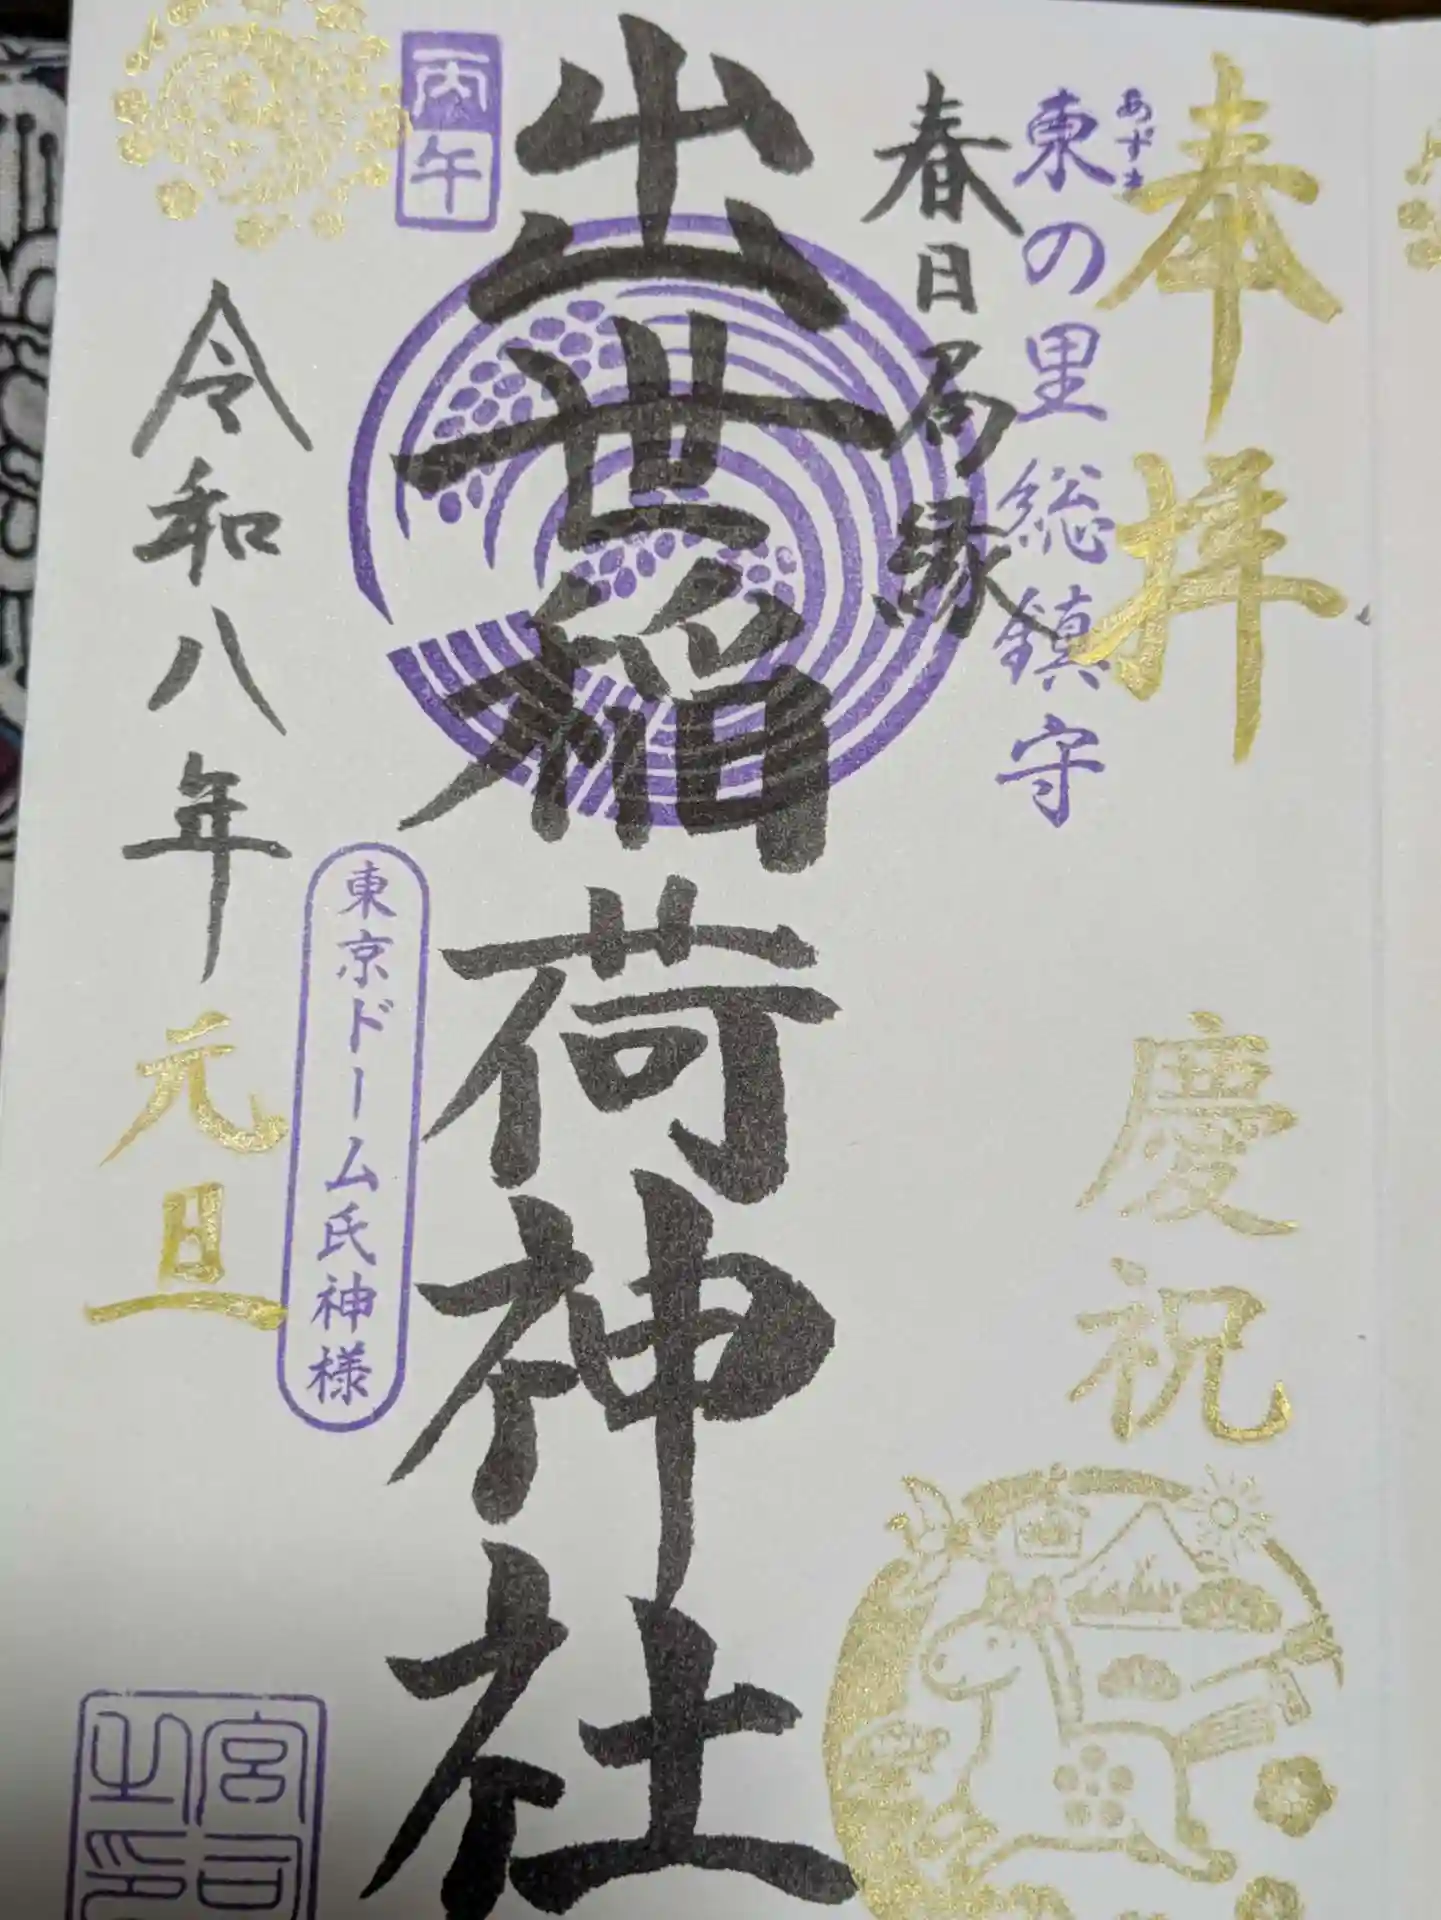 奉拝
慶祝
あずま
東の里 総鎮守
春日局縁
出世稲荷神社
丙午
東京ドーム氏神様
令和八年元旦
宮司
之印